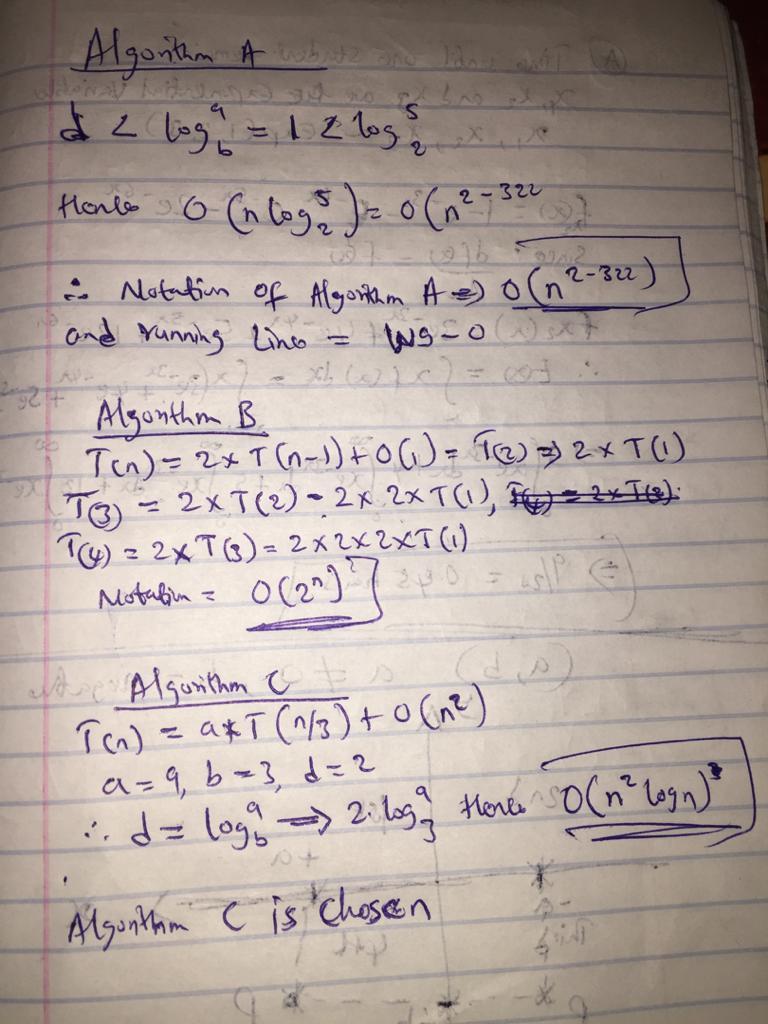 Algorithm A
d < log_b^a = 1 < log_2^5
Hence O(n log_2^5) = O(n^2-322
∴ Notation of Algorithm A => O(n^2-322)
and running time = ws-0
Algorithm B
T(n) = 2 x T(n-1) + O(1) = T(2) => 2 x T(1)
T(3) = 2 x T(2) - 2 x 2 x T(1),
T(4) = 2 x T(3) = 2 x 2 x 2 x T(1)
Notation = O(2^n)
Algorithm C
T(n) = a * T(n/3) + O(n^2)
a = 9, b = 3, d = 2
∴ d = log_b^a => 2. log_3^9 Hence O(n^2 log n)
Algorithm C is chosen